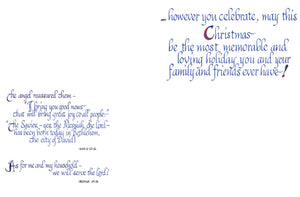 The angel reassured them–
"I bring you good news
that will bring great joy to all people.
The Savior – yes, the Messiah, the Lord –
has been born today in Bethlehem,
the city of David!
As for me and my household –
we will serve the Lord!
...however you celebrate, may this
Christmas
be the most memorable and
loving holiday you and your
family and friends ever have–!